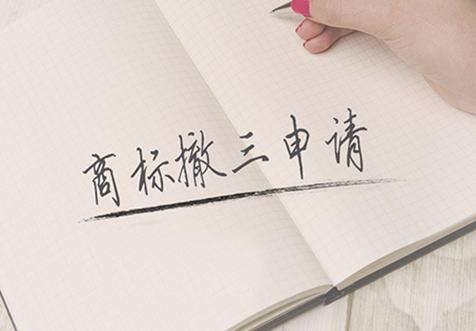 商标撤三申请